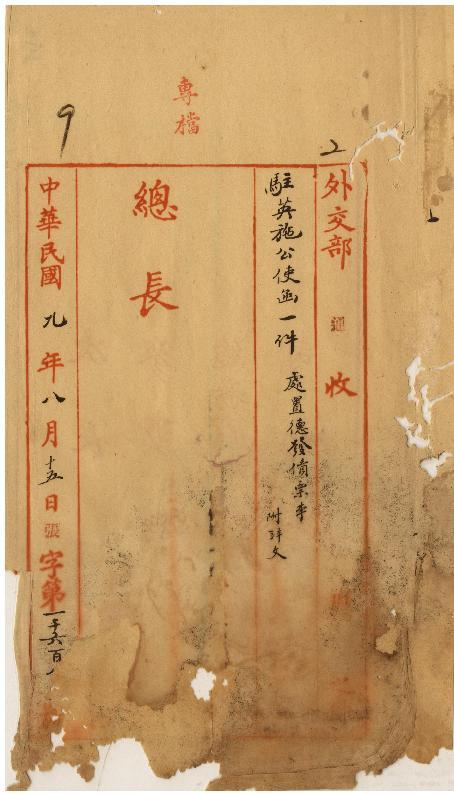 專檔
外交部 收
駐英施公使函一件 處置德發債票事
附譯文
總長
中華民國九年八月十五日張字第一千六百八